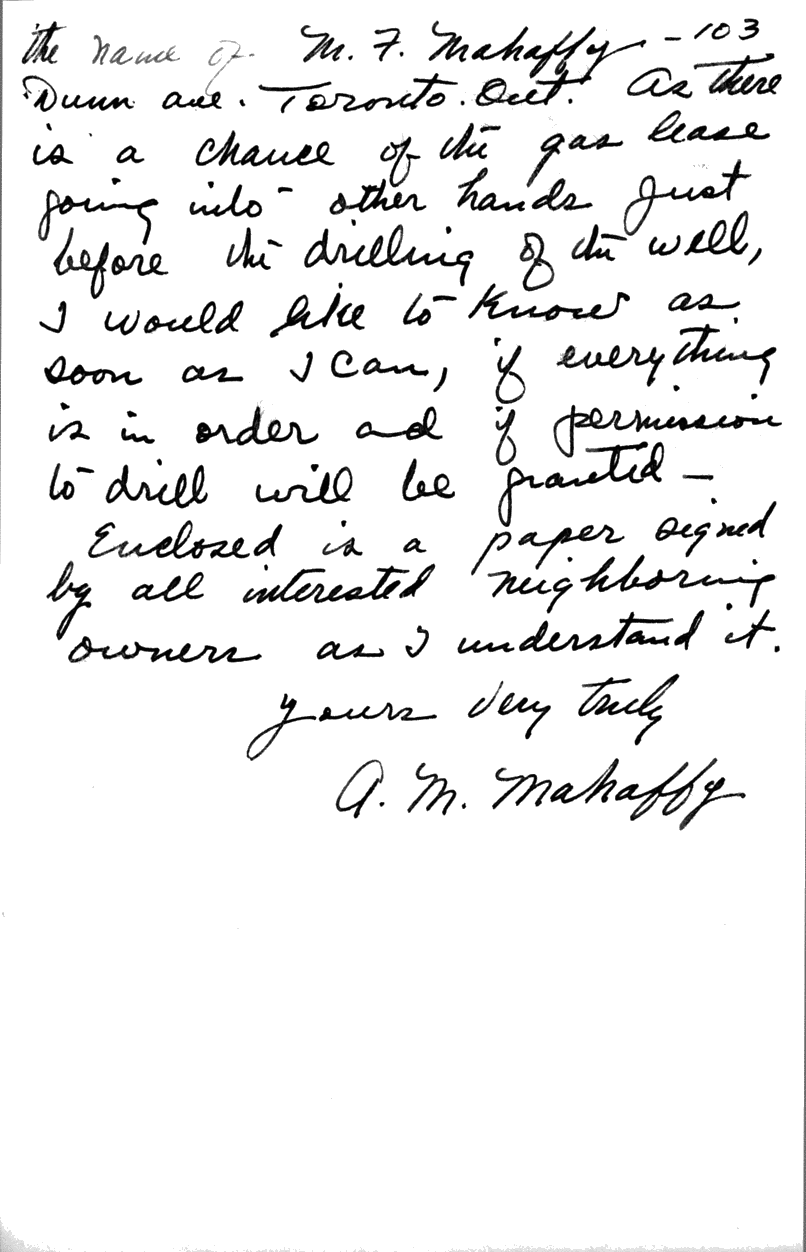 the name of M. F. Mahaffy - 103
Dunn ave. Toronto. Ont. As there
is a chance of the gas lease
going into other hands just
before the drilling of the well,
I would like to know as
soon as I can, if everything
is in order and if permission
to drill will be granted -
Enclosed is a paper signed
by all interested neighboring
owners as I understand it.
yours very truly
A. M. Mahaffy